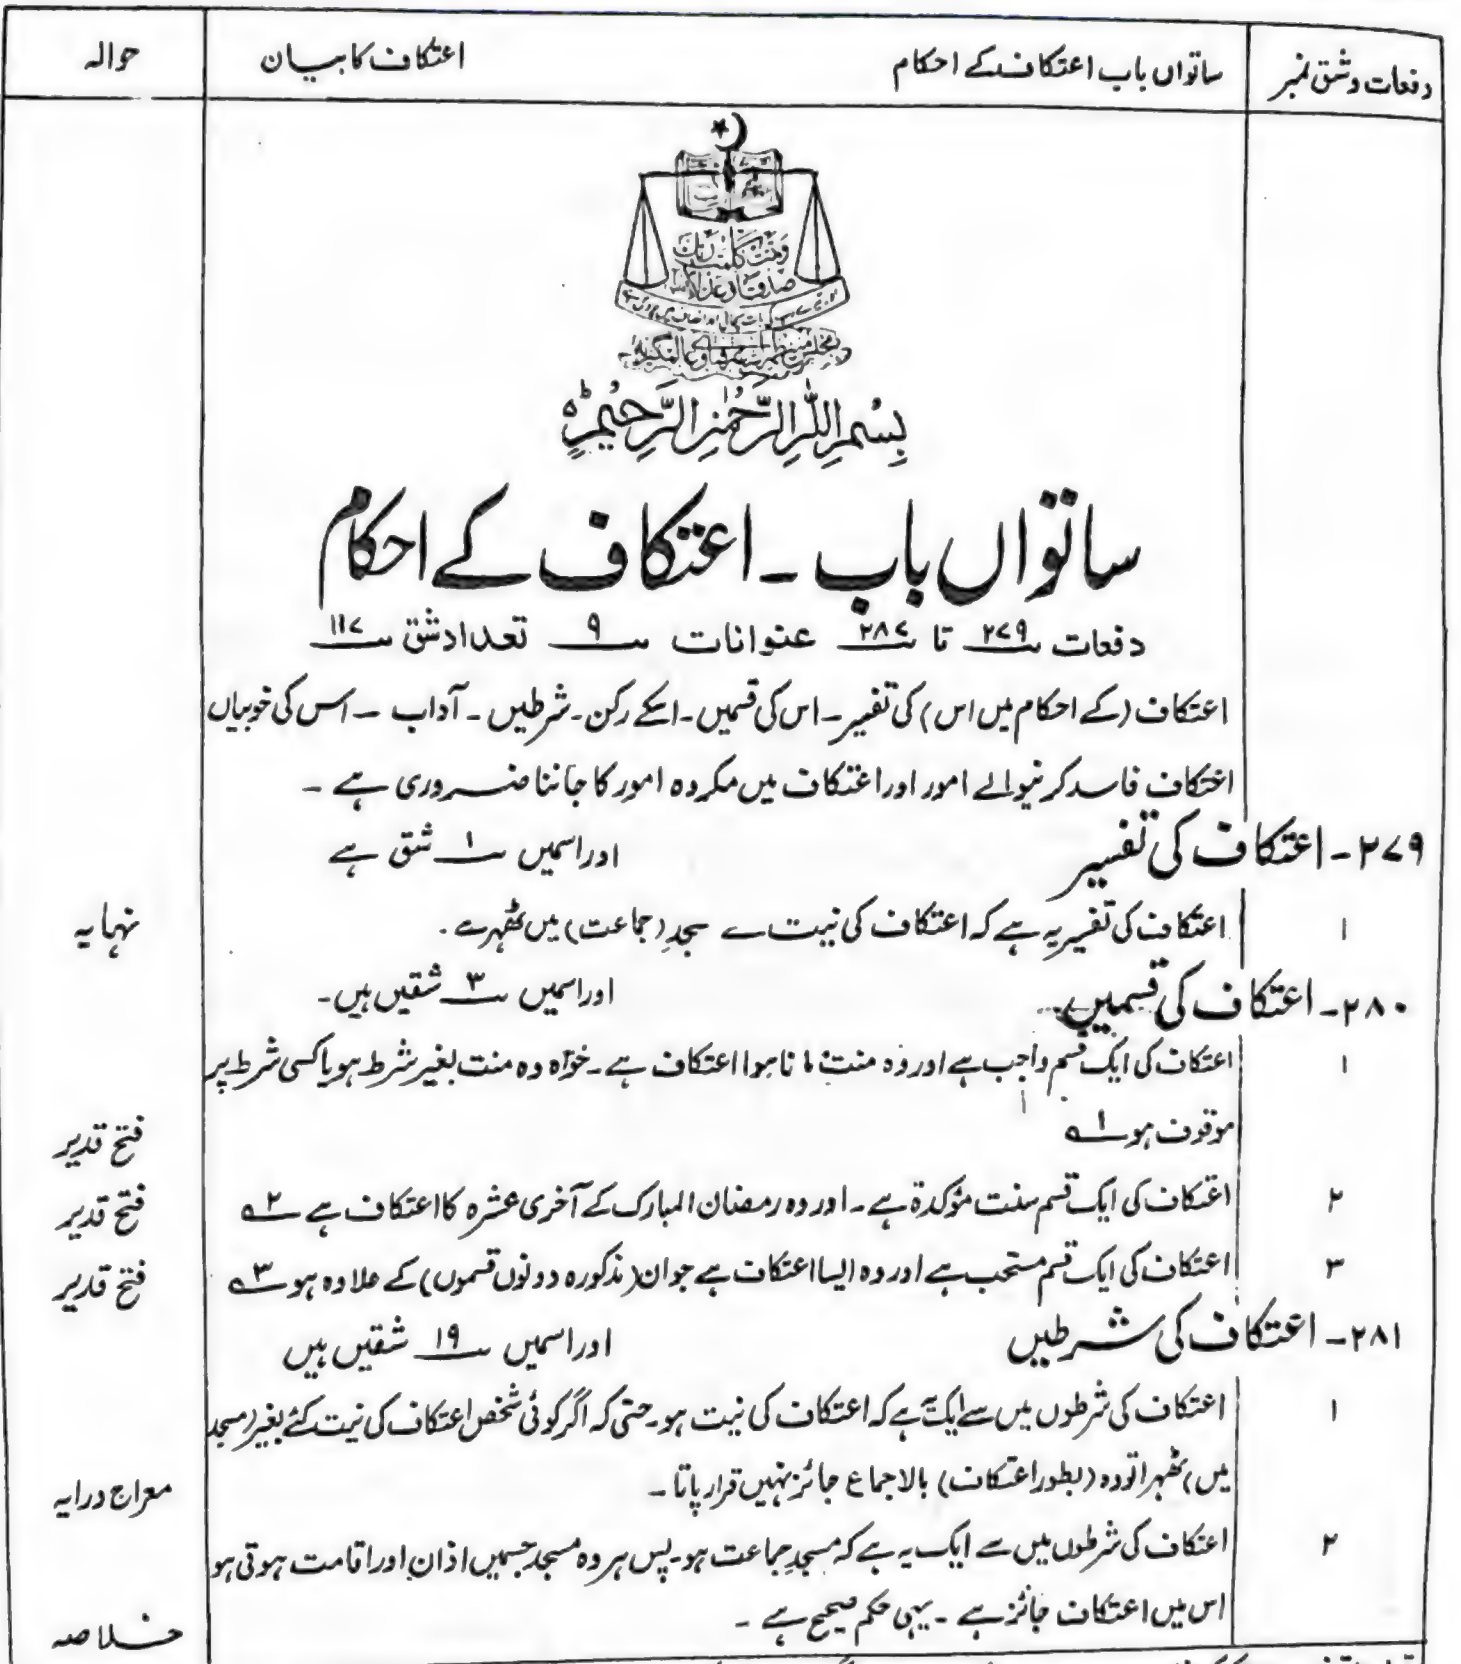 دفعات و شق نمبر ساتواں باب اعتکاف کے احکام اعتکاف کا بیان حوالہ
وتمت کلمت ربک
صدقا وعدلا
بِسْمِ اللّٰہِ الرَّحْمٰنِ الرَّحِیْمِ
ساتواں باب ۔ اعتکاف کے احکام
دفعات ۲۷۹ تا ۲۸۷ عنوانات ۹ تعداد شق ۱۱۷
اعتکاف (کے احکام میں اس) کی تفسیر ۔ اس کی قسمیں ۔ اسکے رکن ۔ شرطیں ۔ آداب ۔ اس کی خوبیاں
اعتکاف فاسد کرنیوالے امور اور اعتکاف میں مکروہ امور کا جاننا ضروری ہے ۔
۲۷۹ ۔ اعتکاف کی تفسیر اور اسمیں ۱ شق ہے
۱ اعتکاف کی تفسیر یہ ہے کہ اعتکاف کی نیت سے مسجدِ (جماعت) میں ٹھہرے ۔ نہایہ
۲۸۰ ۔ اعتکاف کی قسمیں اور اسمیں ۳ شقیں ہیں ۔
۱ اعتکاف کی ایک قسم واجب ہے اور وہ منت مانا ہوا اعتکاف ہے ۔ خواہ وہ منت بغیر شرط ہو یا کسی شرط پر
موقوف ہو ۱؎ فتح قدیر
۲ اعتکاف کی ایک قسم سنت مؤکدۃ ہے ۔ اور وہ رمضان المبارک کے آخری عشرہ کا اعتکاف ہے ۲؎ فتح قدیر
۳ اعتکاف کی ایک قسم مستحب ہے اور وہ ایسا اعتکاف ہے جو ان (مذکورہ دونوں قسموں) کے علاوہ ہو ۳؎ فتح قدیر
۲۸۱ ۔ اعتکاف کی شرطیں اور اسمیں ۱۹ شقیں ہیں
۱ اعتکاف کی شرطوں میں سے ایک یہ ہے کہ اعتکاف کی نیت ہو ۔ حتی کہ اگر کوئی شخص اعتکاف کی نیت کئے بغیر (مسجد
میں) ٹھہرا تو وہ (بطور اعتکاف) بالاجماع جائز نہیں قرار پاتا ۔ معراج درایہ
۲ اعتکاف کی شرطوں میں سے ایک یہ ہے کہ مسجدِ جماعت ہو ۔ پس ہر وہ مسجد جسمیں اذان اور اقامت ہوتی ہو
اس میں اعتکاف جائز ہے ۔ یہی حکم صحیح ہے ۔ خلاصہ